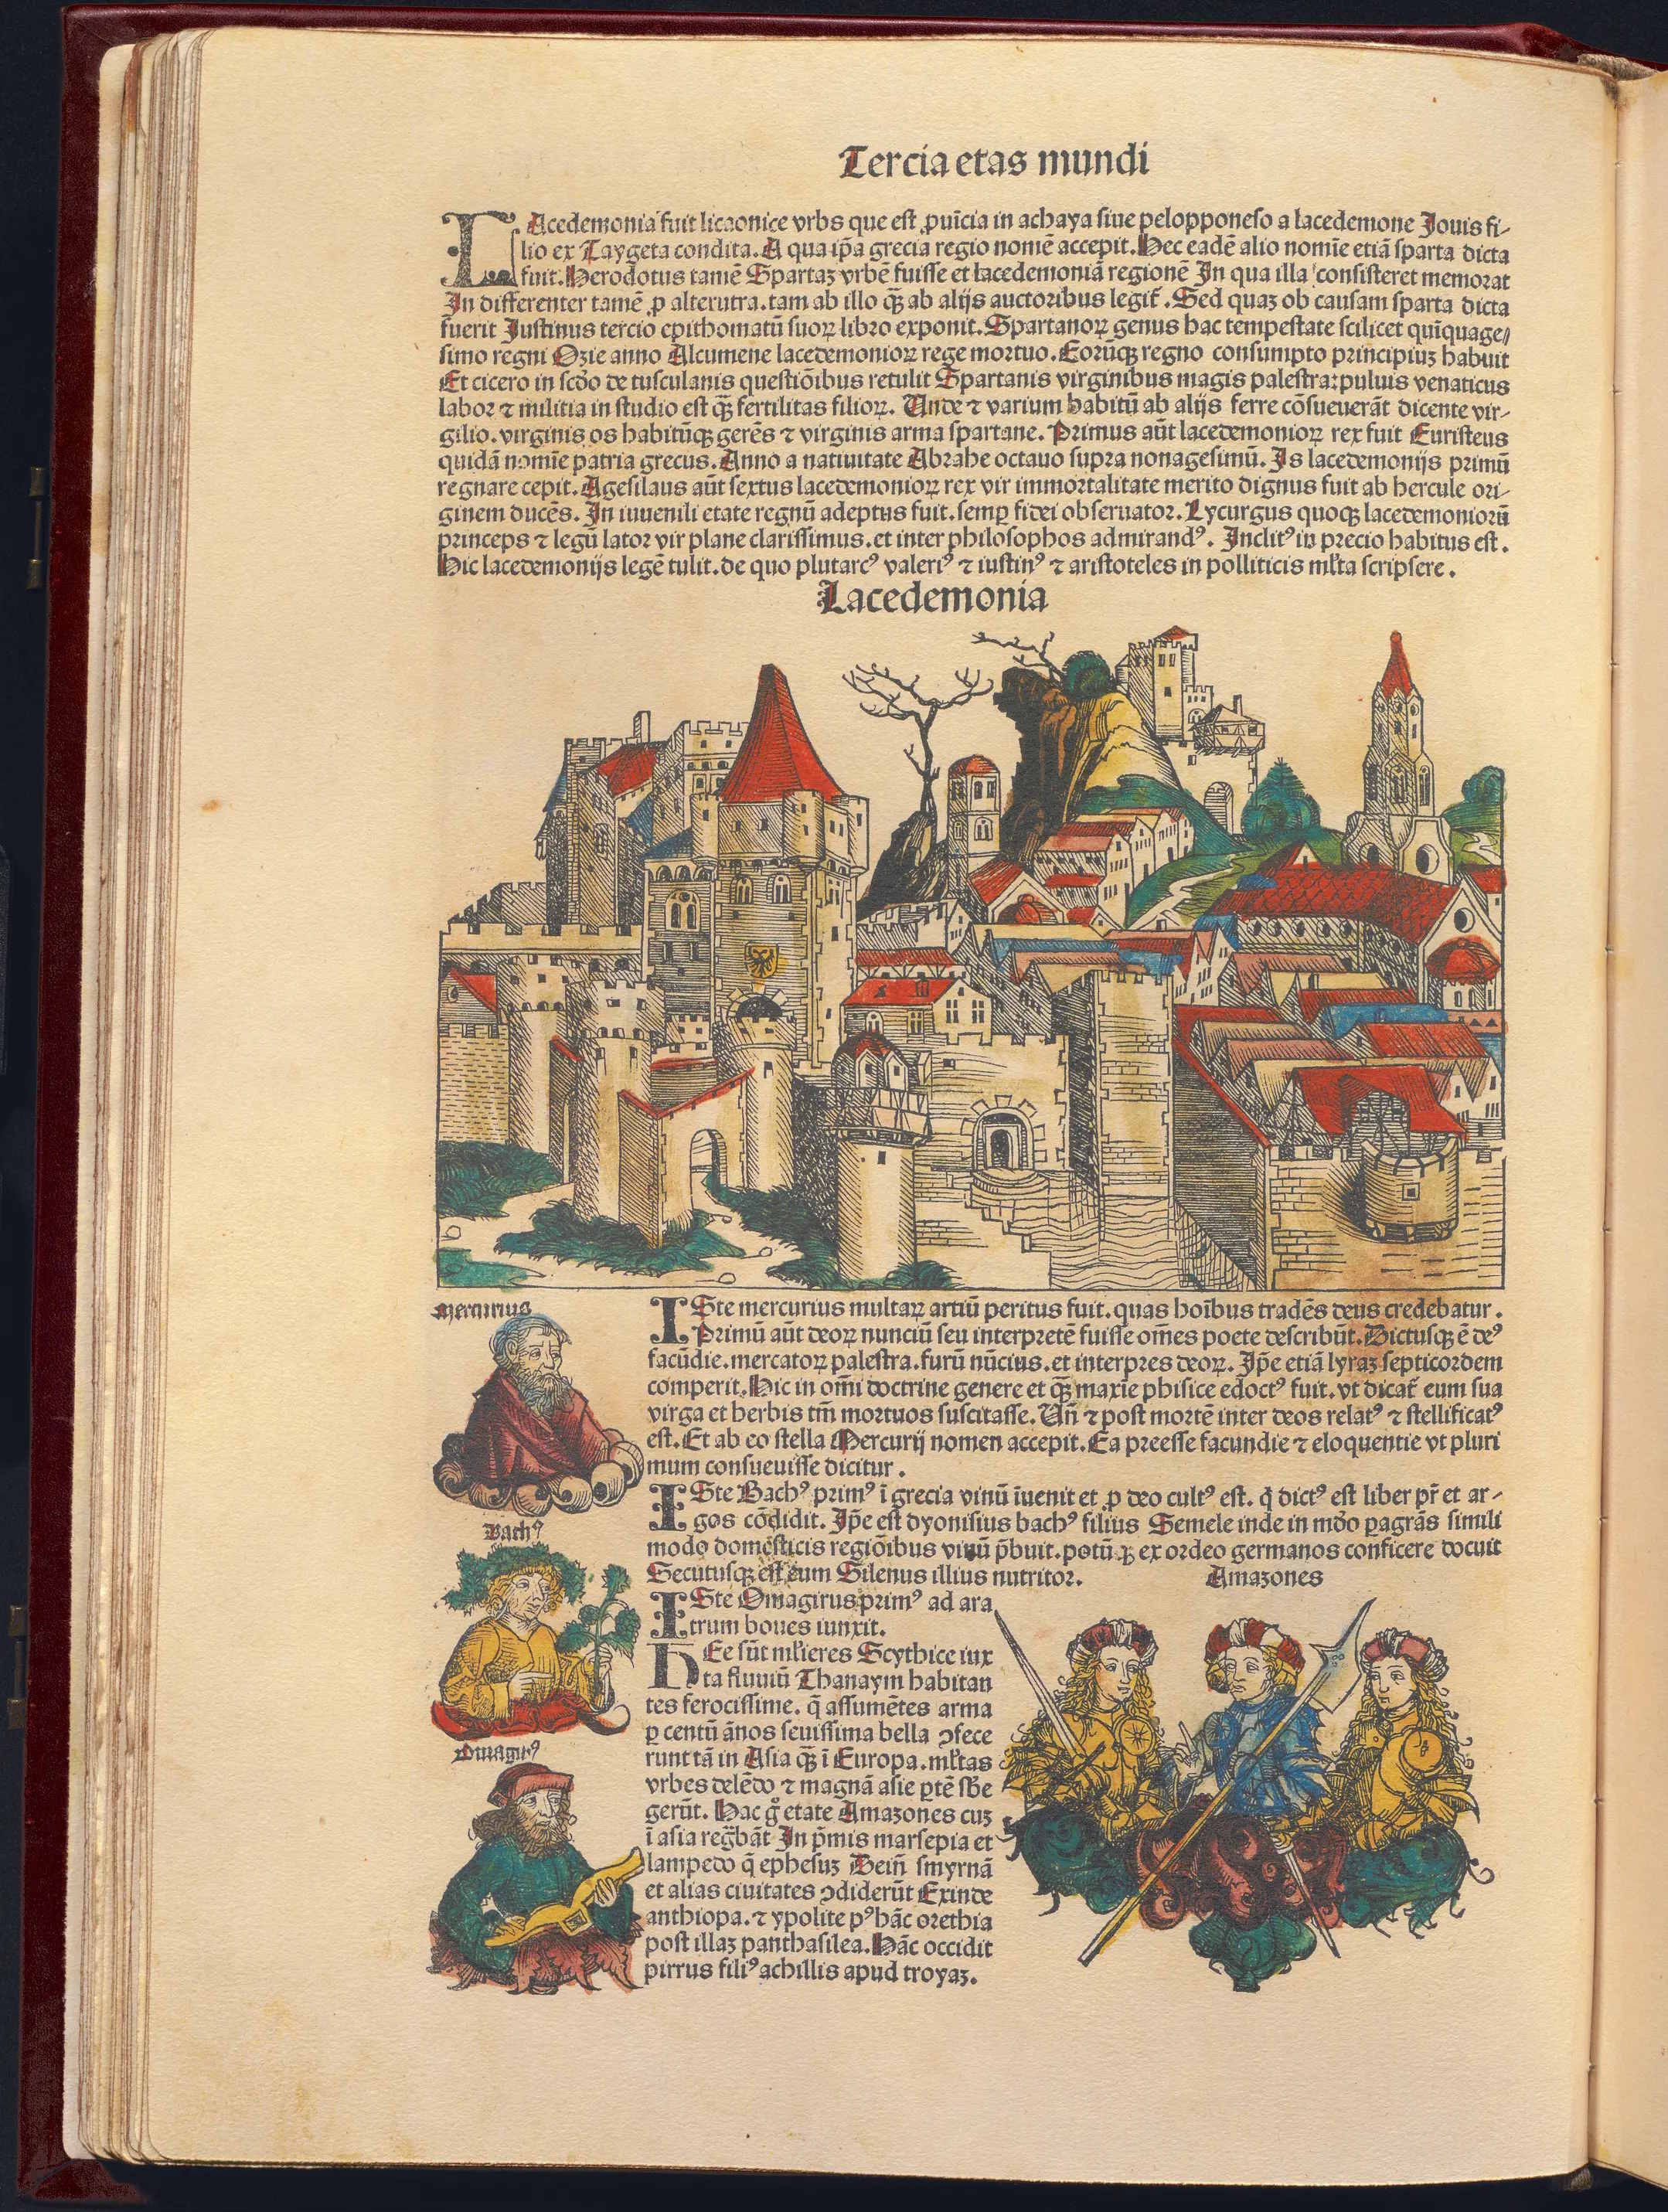 Tercia etas mundi
LAcedemonia fuit licaonice vrbs que est ꝓuīcia in achaya siue pelopponeso a lacedemone Jouis fi-
lio ex Taygeta condita. A qua ip̄a grecia regio nomē accepit. Hec eadē alio nomīe etiā sparta dicta
fuit. Herodotus tamē Spartaꝫ vrbē fuisse et lacedemoniā regionē In qua illa consisteret memorat
In differenter tamē ꝓ alterutra. tam ab illo qꝫ̄ ab alijs auctoribus legit̄. Sed quaꝫ ob causam sparta dicta
fuerit Justinus tercio epithomatū suoꝝ libro exponit. Spartanoꝝ genus hac tempestate scilicet quīquage-
simo regni Ozie anno Alcumene lacedemonioꝝ rege mortuo. Eorūqꝫ regno consumpto principiuꝫ habuit
Et cicero in scd̄o de tusculanis questiōibus retulit Spartanis virginibus magis palestra: puluis venaticus
labor ⁊ militia in studio est qꝫ̄ fertilitas filioꝝ. Unde ⁊ varium habitū ab alijs ferre cōsueuerāt dicente vir-
gilio. virginis os habitūqꝫ gerēs ⁊ virginis arma spartane. Primus aūt lacedemonioꝝ rex fuit Euristeus
quidā nomīe patria grecus. Anno a natiuitate Abrahe octauo supra nonagesimū. Is lacedemonijs primū
regnare cepit. Agesilaus aūt sextus lacedemonioꝝ rex vir immortalitate merito dignus fuit ab hercule ori-
ginem ducēs. In iuuenili etate regnū adeptus fuit. semꝑ fidei obseruator. Lycurgus quoqꝫ lacedemoniorū
princeps ⁊ legū lator vir plane clarissimus. et inter philosophos admirandꝰ. Inclitꝰ in precio habitus est.
Hic lacedemonijs legē tulit. de quo plutarcꝰ valeriꝰ ⁊ iustinꝰ ⁊ aristoteles in polliticis ml̄ta scripsere.
Lacedemonia
Mercurius
ISte mercurius multaꝝ artiū peritus fuit. quas hoībus tradēs deus credebatur.
Primū aūt deoꝝ nunciū seu interpretē fuisse om̄es poete describūt. Dictusqꝫ ē deꝰ
facūdie. mercatoꝝ palestra. furū nūcius. et interpres deoꝝ. Ip̄e etiā lyraꝫ septicordem
comperit. Hic in om̄i doctrine genere et qꝫ̄ maxīe phisice edoctꝰ fuit. vt dicat̄ eum sua
virga et herbis tm̄ mortuos suscitasse. Un̄ ⁊ post mortē inter deos relatꝰ ⁊ stellificatꝰ
est. Et ab eo stella Mercurij nomen accepit. Ea preesse facundie ⁊ eloquentie vt pluri
mum consueuisse dicitur.
Bachꝰ
ISte Bachꝰ primꝰ ī grecia vinū īuenit et ꝓ deo cultꝰ est. q̄ dictꝰ est liber pr̄ et ar-
gos cōdidit. Ip̄e est dyonisius bachꝰ filius Semele inde in mō̄o ꝑagrās simili
modo domesticis regiōibus vinū p̄buit. potū qꝫ ex ordeo germanos conficere docuit
Secutusqꝫ est eum Silenus illius nutritor.
Omagirꝰ
ISte Omagirus primꝰ ad ara
trum boues iunxit.
Amazones
HEe sūt ml̄ieres Scythice iux
ta fluuiū Thanaym habitan
tes ferocissime. q̄ assumētes arma
ꝑ centū ānos seuissima bella ꝯfece
runt tā in Asia qꝫ̄ ī Europa. ml̄tas
vrbes delēdo ⁊ magnā asie ꝑtē sb̄e
gerūt. Hac g̊ etate Amazones cuꝫ
ī asia reḡbāt In p̄mis marsepia et
lampedo q̄ ephesuꝫ Dein̄ smyrnā
et alias ciuitates ꝯdiderūt Exinde
anthiopa. ⁊ ypolite pꝰ hāc orethia
post illaꝫ panthasilea. Hāc occidit
pirrus filiꝰ achillis apud troyaꝫ.